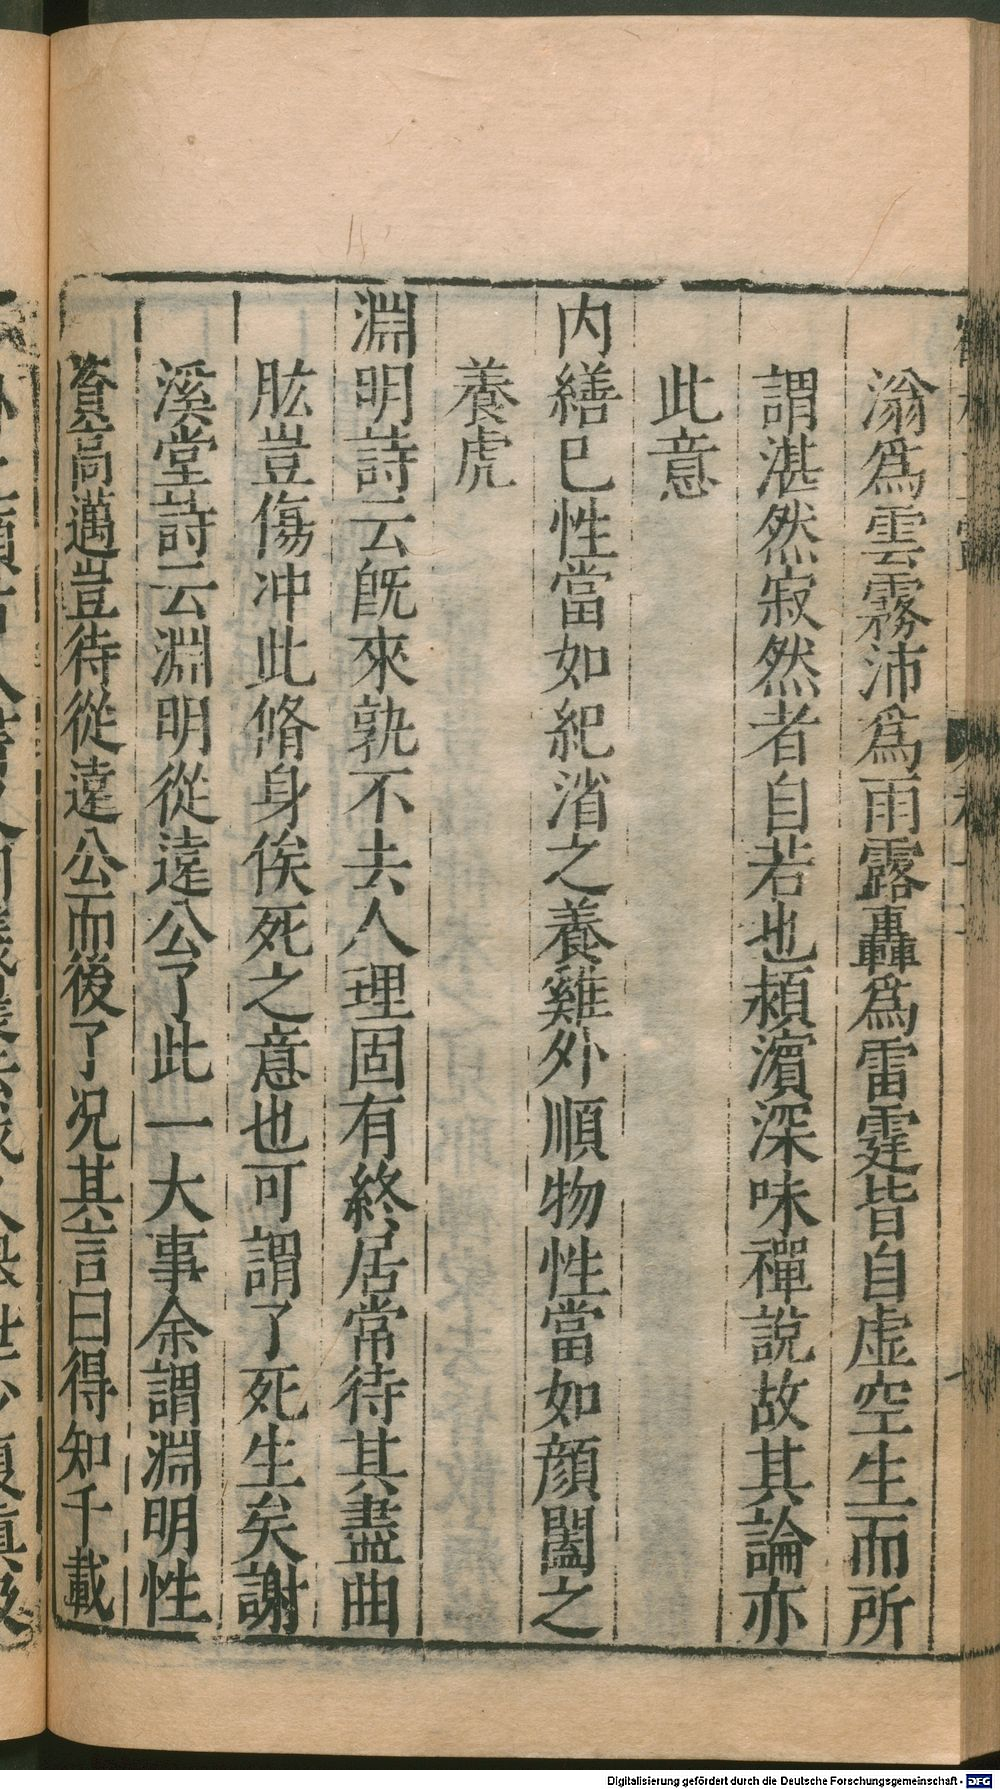 滃爲雲霧沛爲雨露轟爲雷霆皆自虛空生而所
謂湛然寂然者自若也潁濵深味禪說故其論亦
此意
内繕巳性當如紀渻之養雞外順物性當如顔闔之
養虎
淵明詩云旣來孰不去人理固有終居常待其盡曲
肱豈傷冲此脩身俟死之意也可謂了死生矣謝
溪堂詩云淵明從遠公了此一大事余謂淵明性
資高邁豈待從遠公而後了况其言曰得知千載
Digitalisierung gefördert durch die Deutsche Forschungsgemeinschaft - DFG